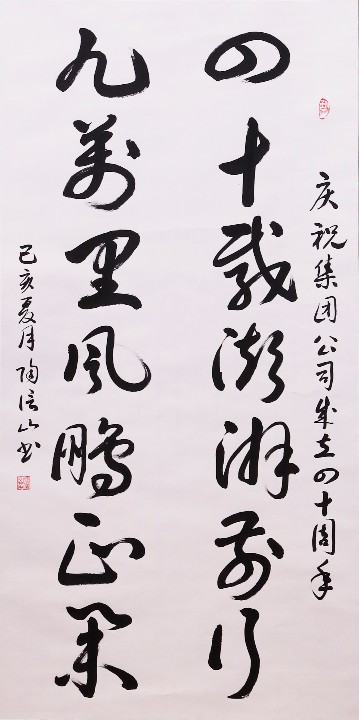 庆祝集团公司成立四十周年
四十載澎湃前行
九萬里风鹏正举
己亥夏月陶信山书